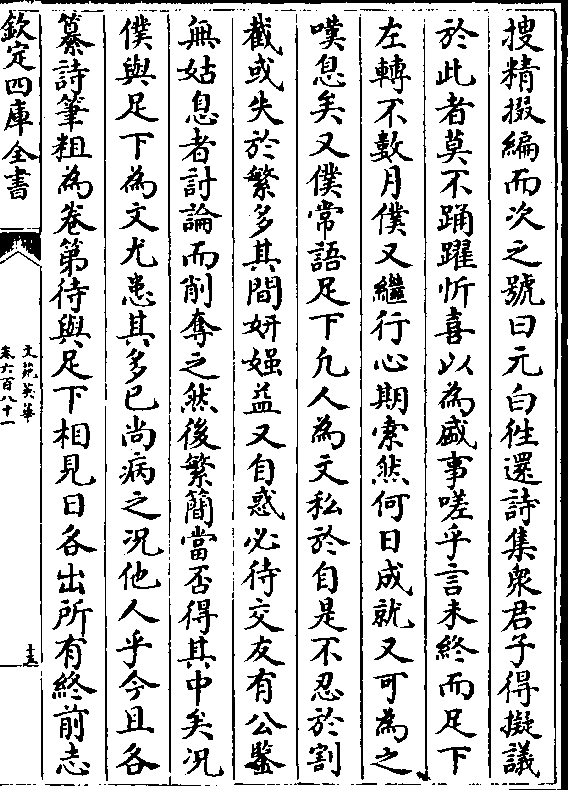 搜精掇編而次之號曰元白徃還詩集衆君子得擬議
於此者莫不踊躍忻喜以為盛事嗟乎言未終而足下
左轉不數月僕又繼行心期索然何日成就又可為之
嘆息矣又僕常語足下凢人為文私於自是不忍於割
截或失於繁多其間妍媸益又自惑必待交友有公鑒
無姑息者討論而削奪之然後繁簡當否得其中矣况
僕與足下為文尤患其多已尚病之况他人乎今且各
纂詩筆粗為卷第待與足下相見日各出所有終前志
欽定四庫全書
文苑英華
卷六百八十一
十五